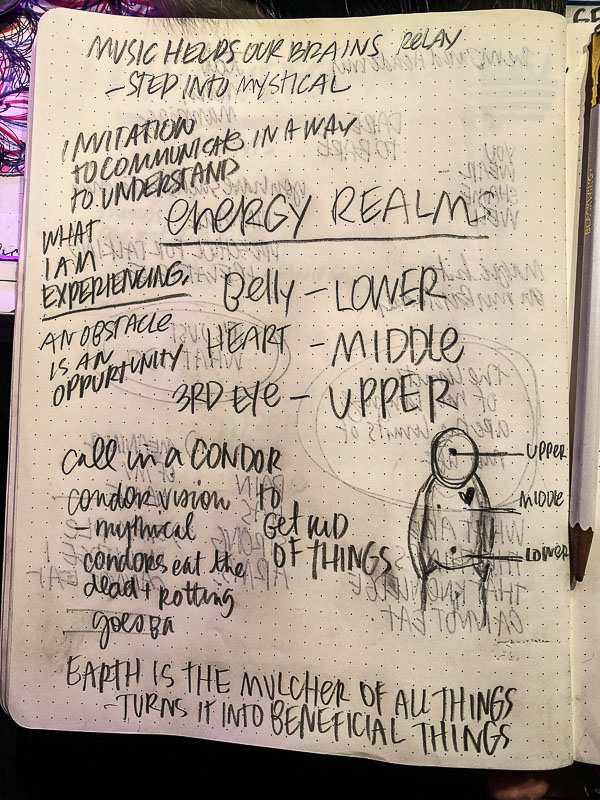 MUSIC HELPS OUR BRAINS RELAY
- STEP INTO MYSTICAL
INVITATION
TO COMMUNICATE IN A WAY
TO UNDERSTAND
WHAT
I AM
EXPERIENCING.
AN OBSTACLE
IS AN
OPPURTUNITY
ENERGY REALMS
Belly - LOWER
HEART - MIDDLE
3RD EYE - UPPER
call in a CONDOR
condor vision
- mythical
condors eat the
dead + rotting
goes
TO
GET RID
OF THINGS
UPPER
MIDDLE
LOWER
EARTH IS THE MULCHER OF ALL THINGS
- TURNS IT INTO BENEFICIAL THINGS